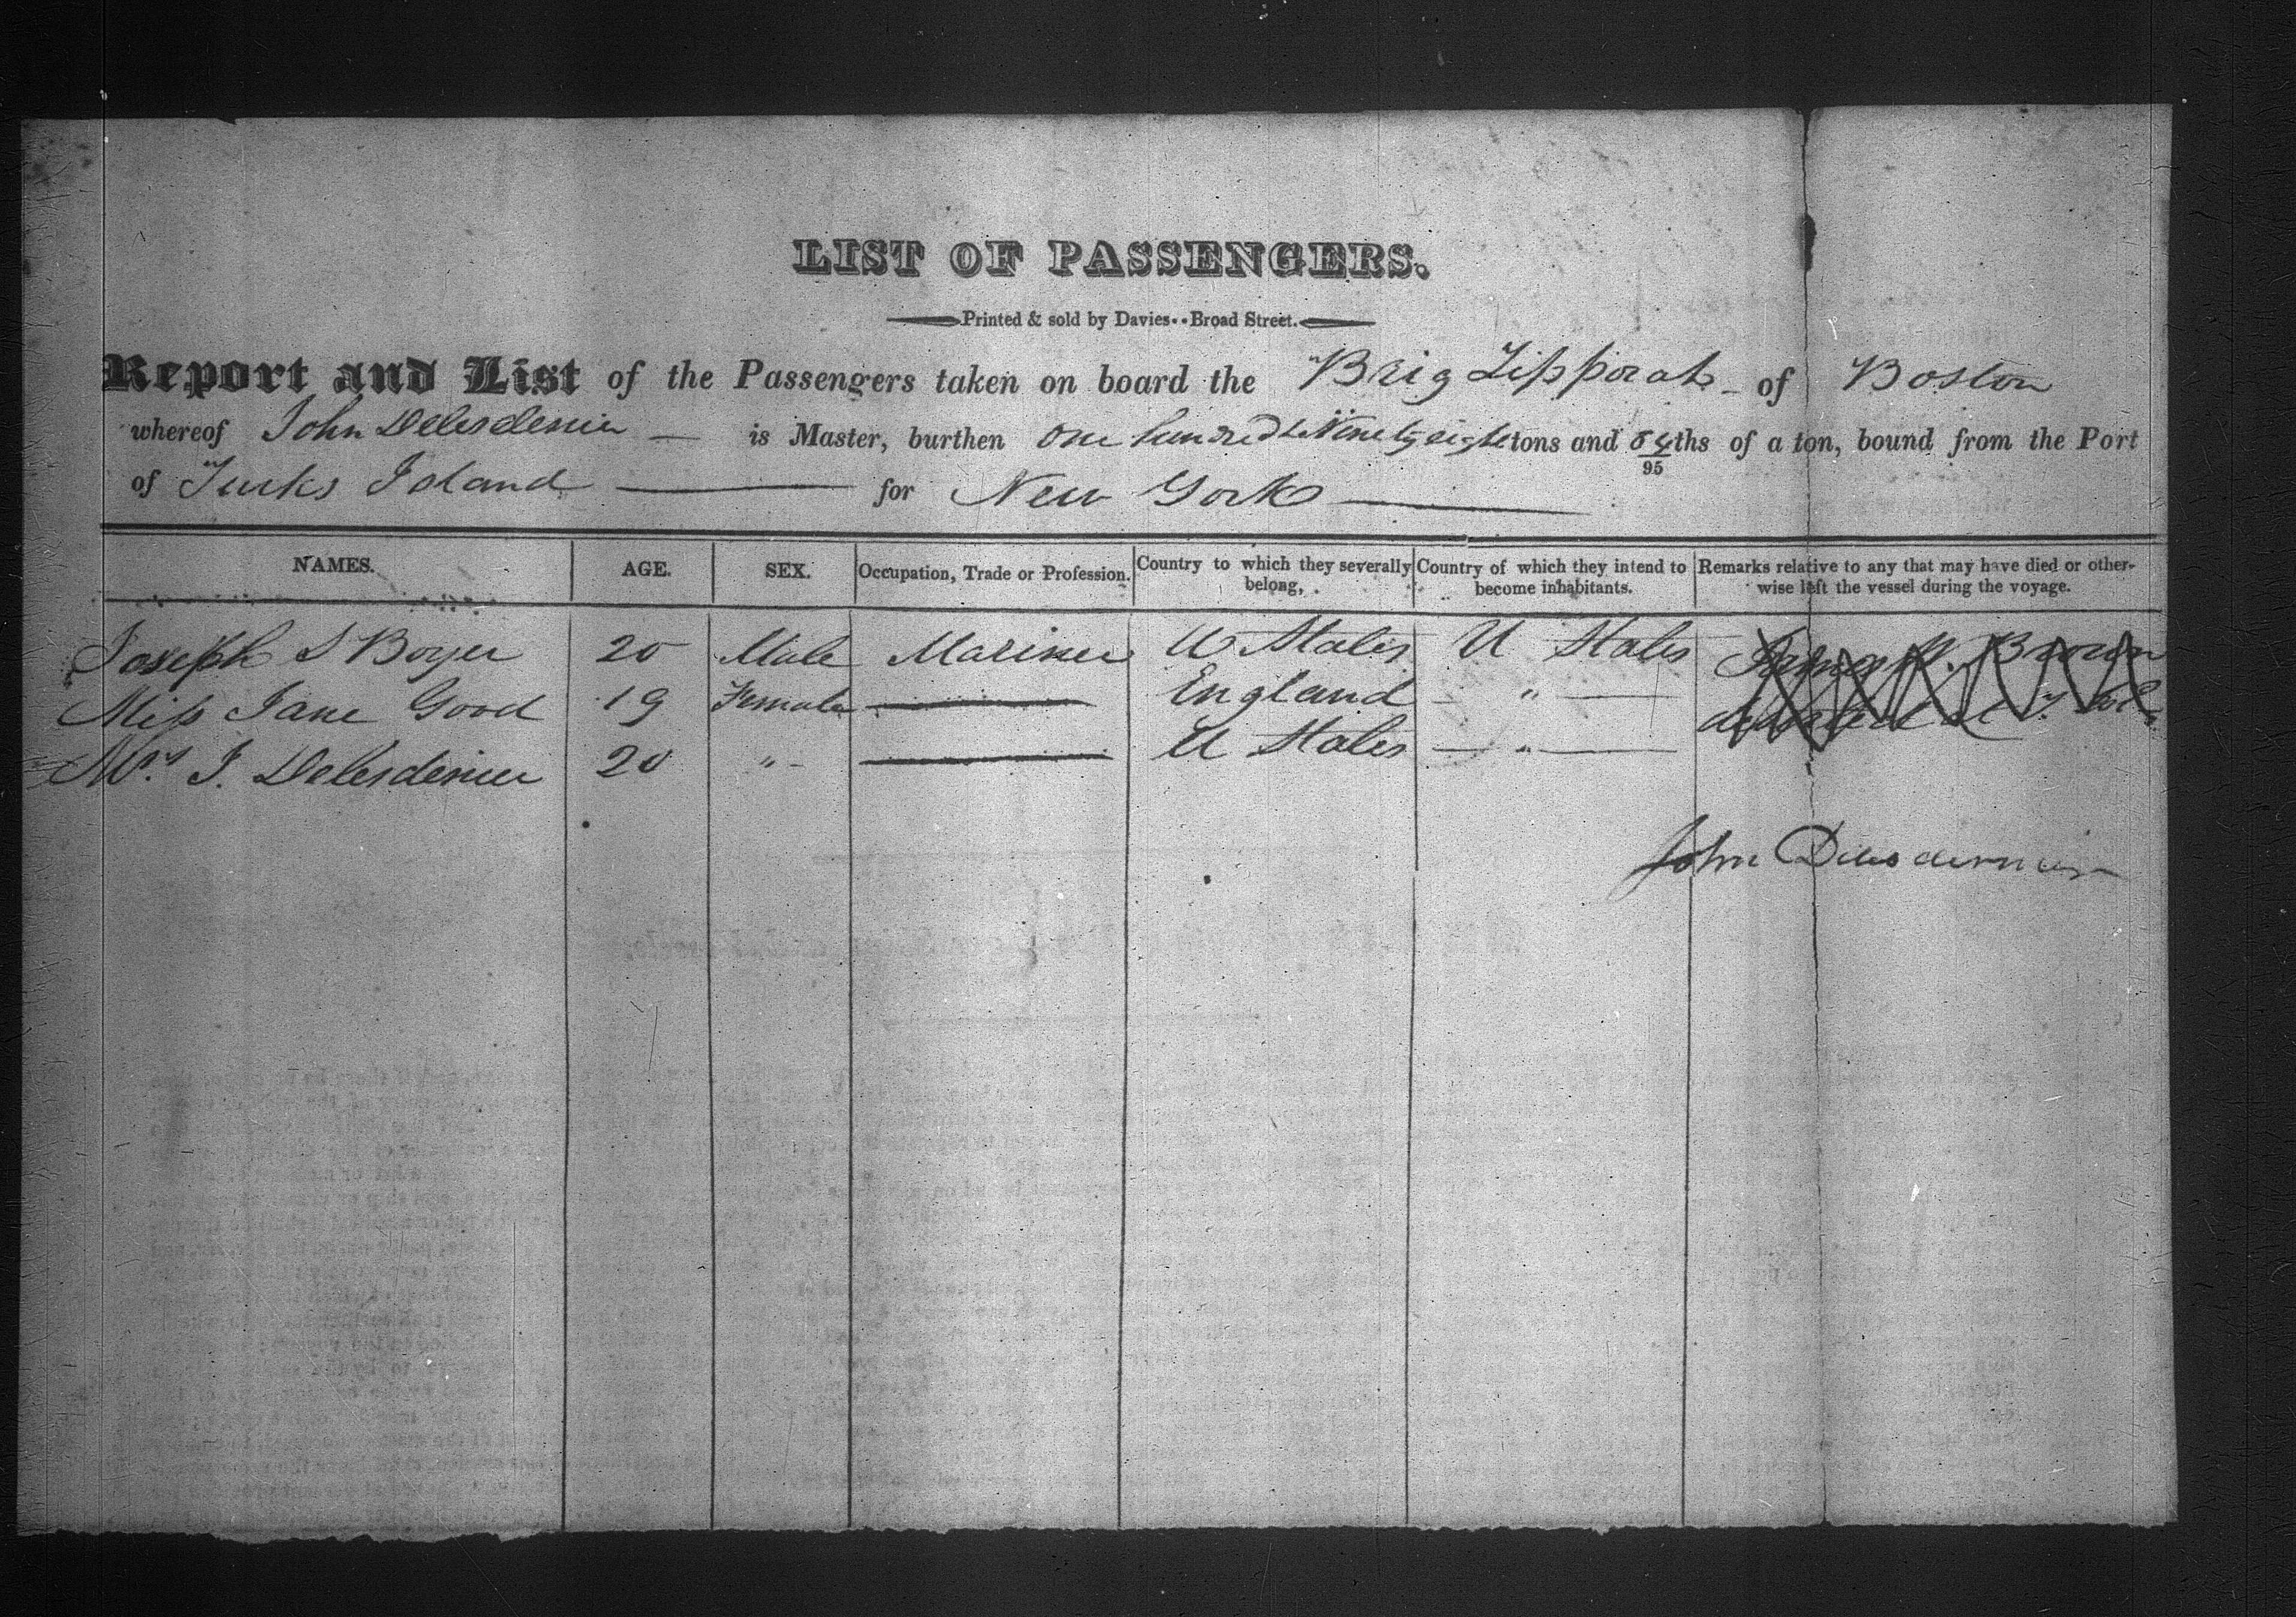 LIST OF PASSENGERS.
Printed & sold by Davies--Broad Street.
Report and List of the Passengers taken on board the Brig Zipporah of Boston
whereof John Delesdenier is Master, burthen One hundred & Ninety eight tons and 84/95 ths of a ton, bound from the Port
of Turks Island for New York
NAMES. AGE. SEX. Occupation, Trade or Profession. Country to which they severally belong, Country of which they intend to become inhabitants. Remarks relative to any that may have died or otherwise left the vessel during the voyage.
Joseph S Boyer 20 Male Mariner U States U States Brown
Miss Jane Good 19 Female England "
Mrs. J. Delesdenier 20 " U States "
John Delesdernier